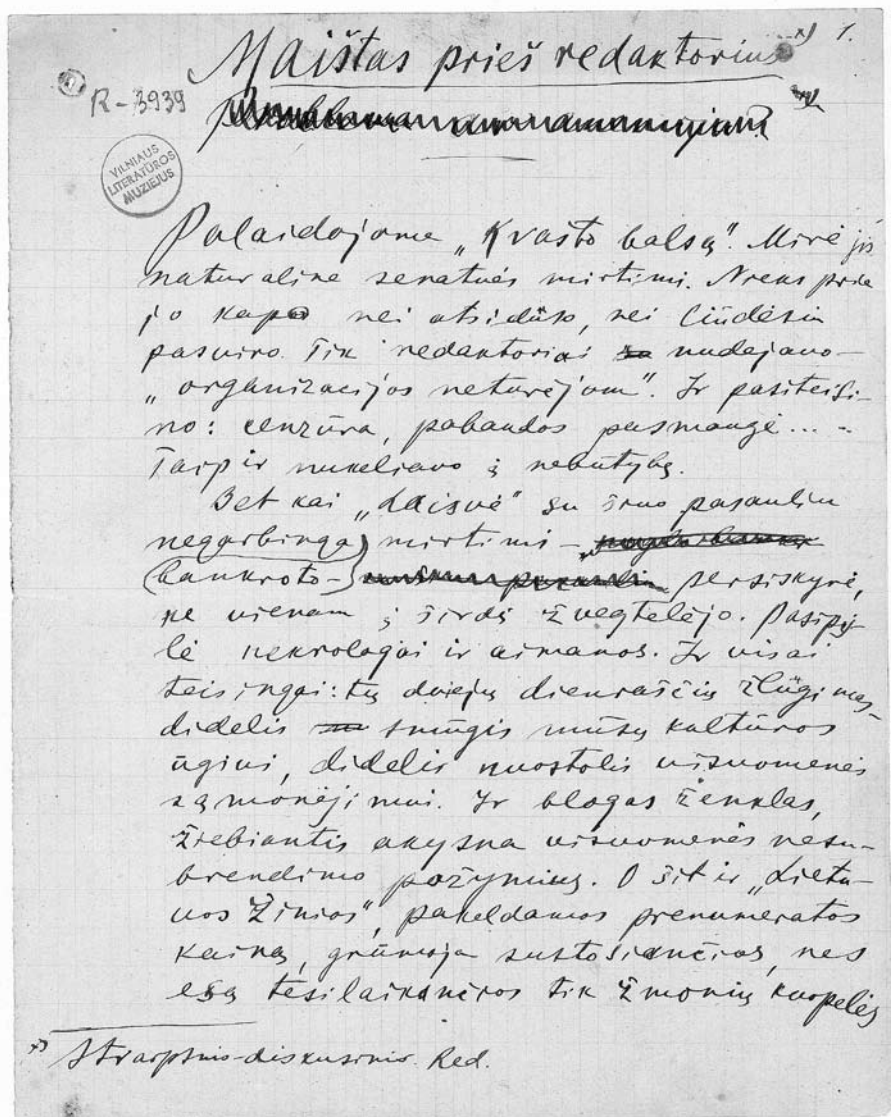 x) 1.
Maištas prieš redaktorius
R-3939
x)
VILNIAUS
LITERATŪROS
MUZIEJUS
Palaidojome „Krašto balsą“. Mirė jis
naturaline senatvės mirtimi. Nieks prie
jo kapo nei atsidūso, nei liūdėsin
pasviro. Tik redaktoriai nudejavo –
„organizacijos neturėjom“. Ir pasiteisi-
no: cenzūra, pabaudos pasmaugė... –
Taip ir nukeliavo į nebūtybę.
Bet kai „Laisvė“ su šiuo pasauliu
negarbinga mirtimi –
bankroto – persiskyrė,
ne vienam į širdį žvegtelėjo. Pasipy-
lė nekrologai ir aimanos. Ir visai
teisingai: tų dviejų dienraščių žlugimas –
didelis smūgis mūsų kultūros
ūgiui, didelis nuostolis visuomenės
sąmonėjimui. Ir blogas ženklas,
žiebiantis akysna visuomenės nesu-
brendimo požymius. O šit ir „Lietu-
vos Žinios“, pakeldamos prenumeratos
kainą, grūmoja sustosiančios, nes
esą tesilaikančios tik žmonių kuopelės
x) Straipsnis diskusinis. Red.